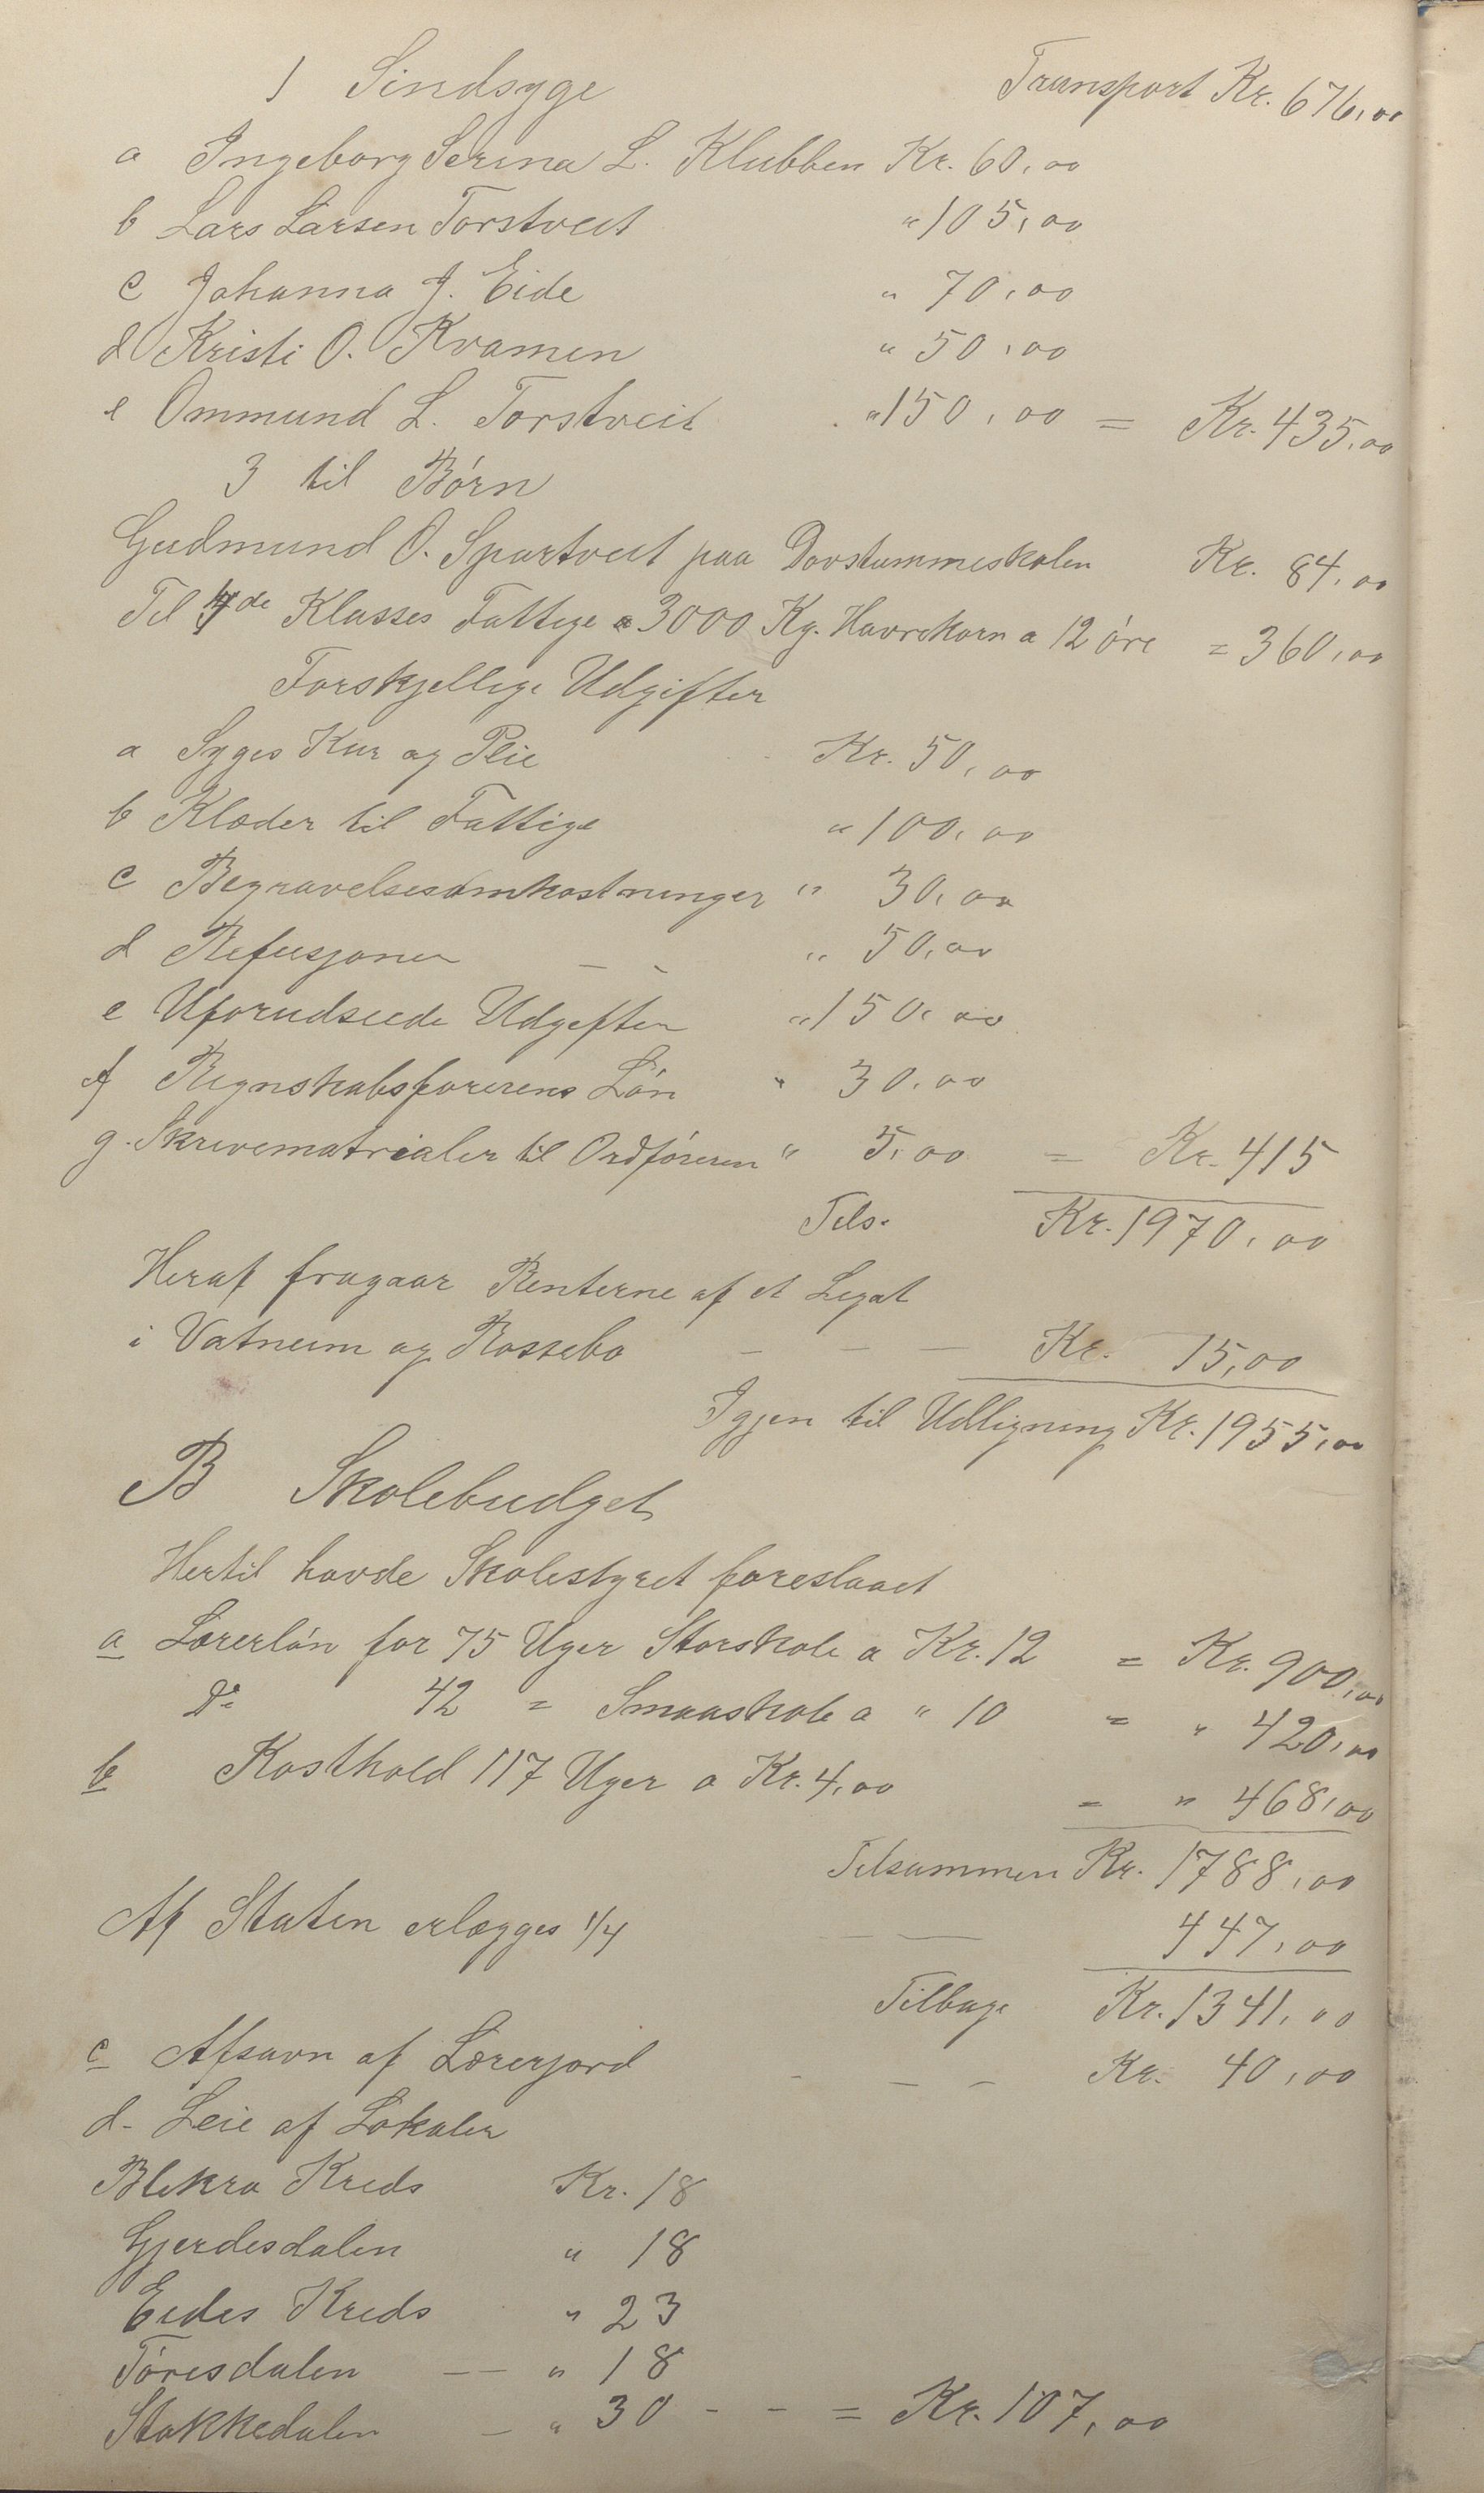 1 Sindsyge Transport Kr. 676,00
a Ingeborg Serina L. Klubben Kr. 60,00
b Lars Larsen Torstveit " 105,00
c Johanna J. Eide " 70,00
d Kristi O. Kvamen " 50,00
e Ommund L. Torstveit " 150,00 = Kr. 435,00
3 til Børn
Gudmund O. Spartveit paa Dovstummeskolen Kr. 84,00
Til de Klasses Fattige 3000 Kg. Havrekorn a 12 øre = 360,00
Forskjellige Udgifter
a Syges Kur og Pleie Kr. 50,00
b Klæder til Fattige " 100,00
c Begravelsesomkostninger " 30,00
d Refusjoner — - " 50,00
e Uforudseede Udgifter " 150,00
f Regnskabsførerens Løn " 30,00
g. Skrivematrialer til Ordføreren " 5,00 = Kr. 415
Tils. Kr. 1970,00
Heraf fragaar Renterne af et Legat
i Vatneim og Rossebø — — — Kr. 15,00
Igjen til Udligning Kr. 1955,00
B Skolebudget
Hertil havde Skolestyret foreslaaet
a Lærerløn for 75 Uger Storskole a Kr. 12 = Kr. 900,00
Do 42 = Smaaskole a " 10 = " 420,00
b Kosthold 117 Uger a Kr. 4,00 = " 468,00
Tilsammen Kr. 1788,00
Af Staten erlægges 1/4 — — 447,00
Tilbage Kr. 1341,00
c Afsavn af Lærerjord - — — Kr. 40,00
d- Leie af Lokaler
Blikra Kreds Kr. 18
Gjerdesdalen " 18
Eides Kreds " 23
Tøresdalen — — " 18
Stakkedalen — " 30 - - = Kr. 107,00